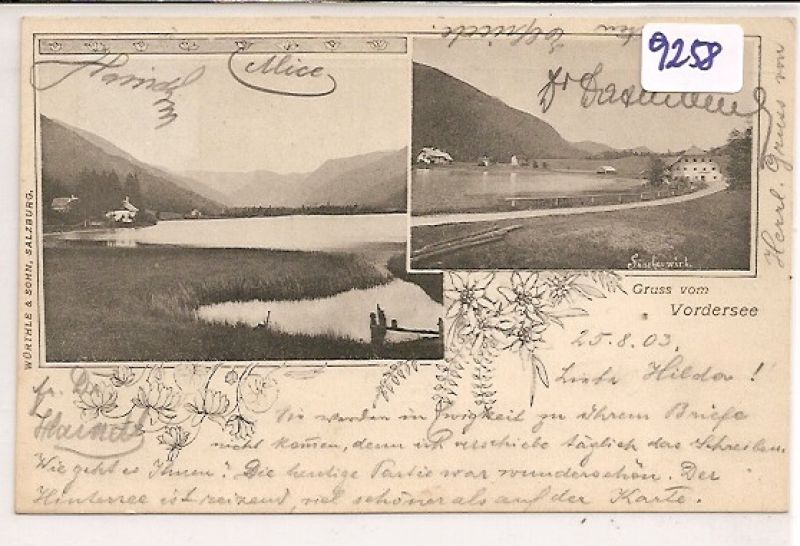 9258
Alice
WÜRTHLE & SOHN, SALZBURG.
Gruss vom
Vordersee
25.8.03.
Liebe Hilda!
Sie werden in Ewigkeit zu Ihrem Briefe
nicht kommen, denn ich verschiebe täglich das Schreiben.
Wie geht es Ihnen? Die heutige Partie war wunderschön. Der
Hintersee ist reizend, viel schöner als auf der Karte.
Herzl. Gruss von